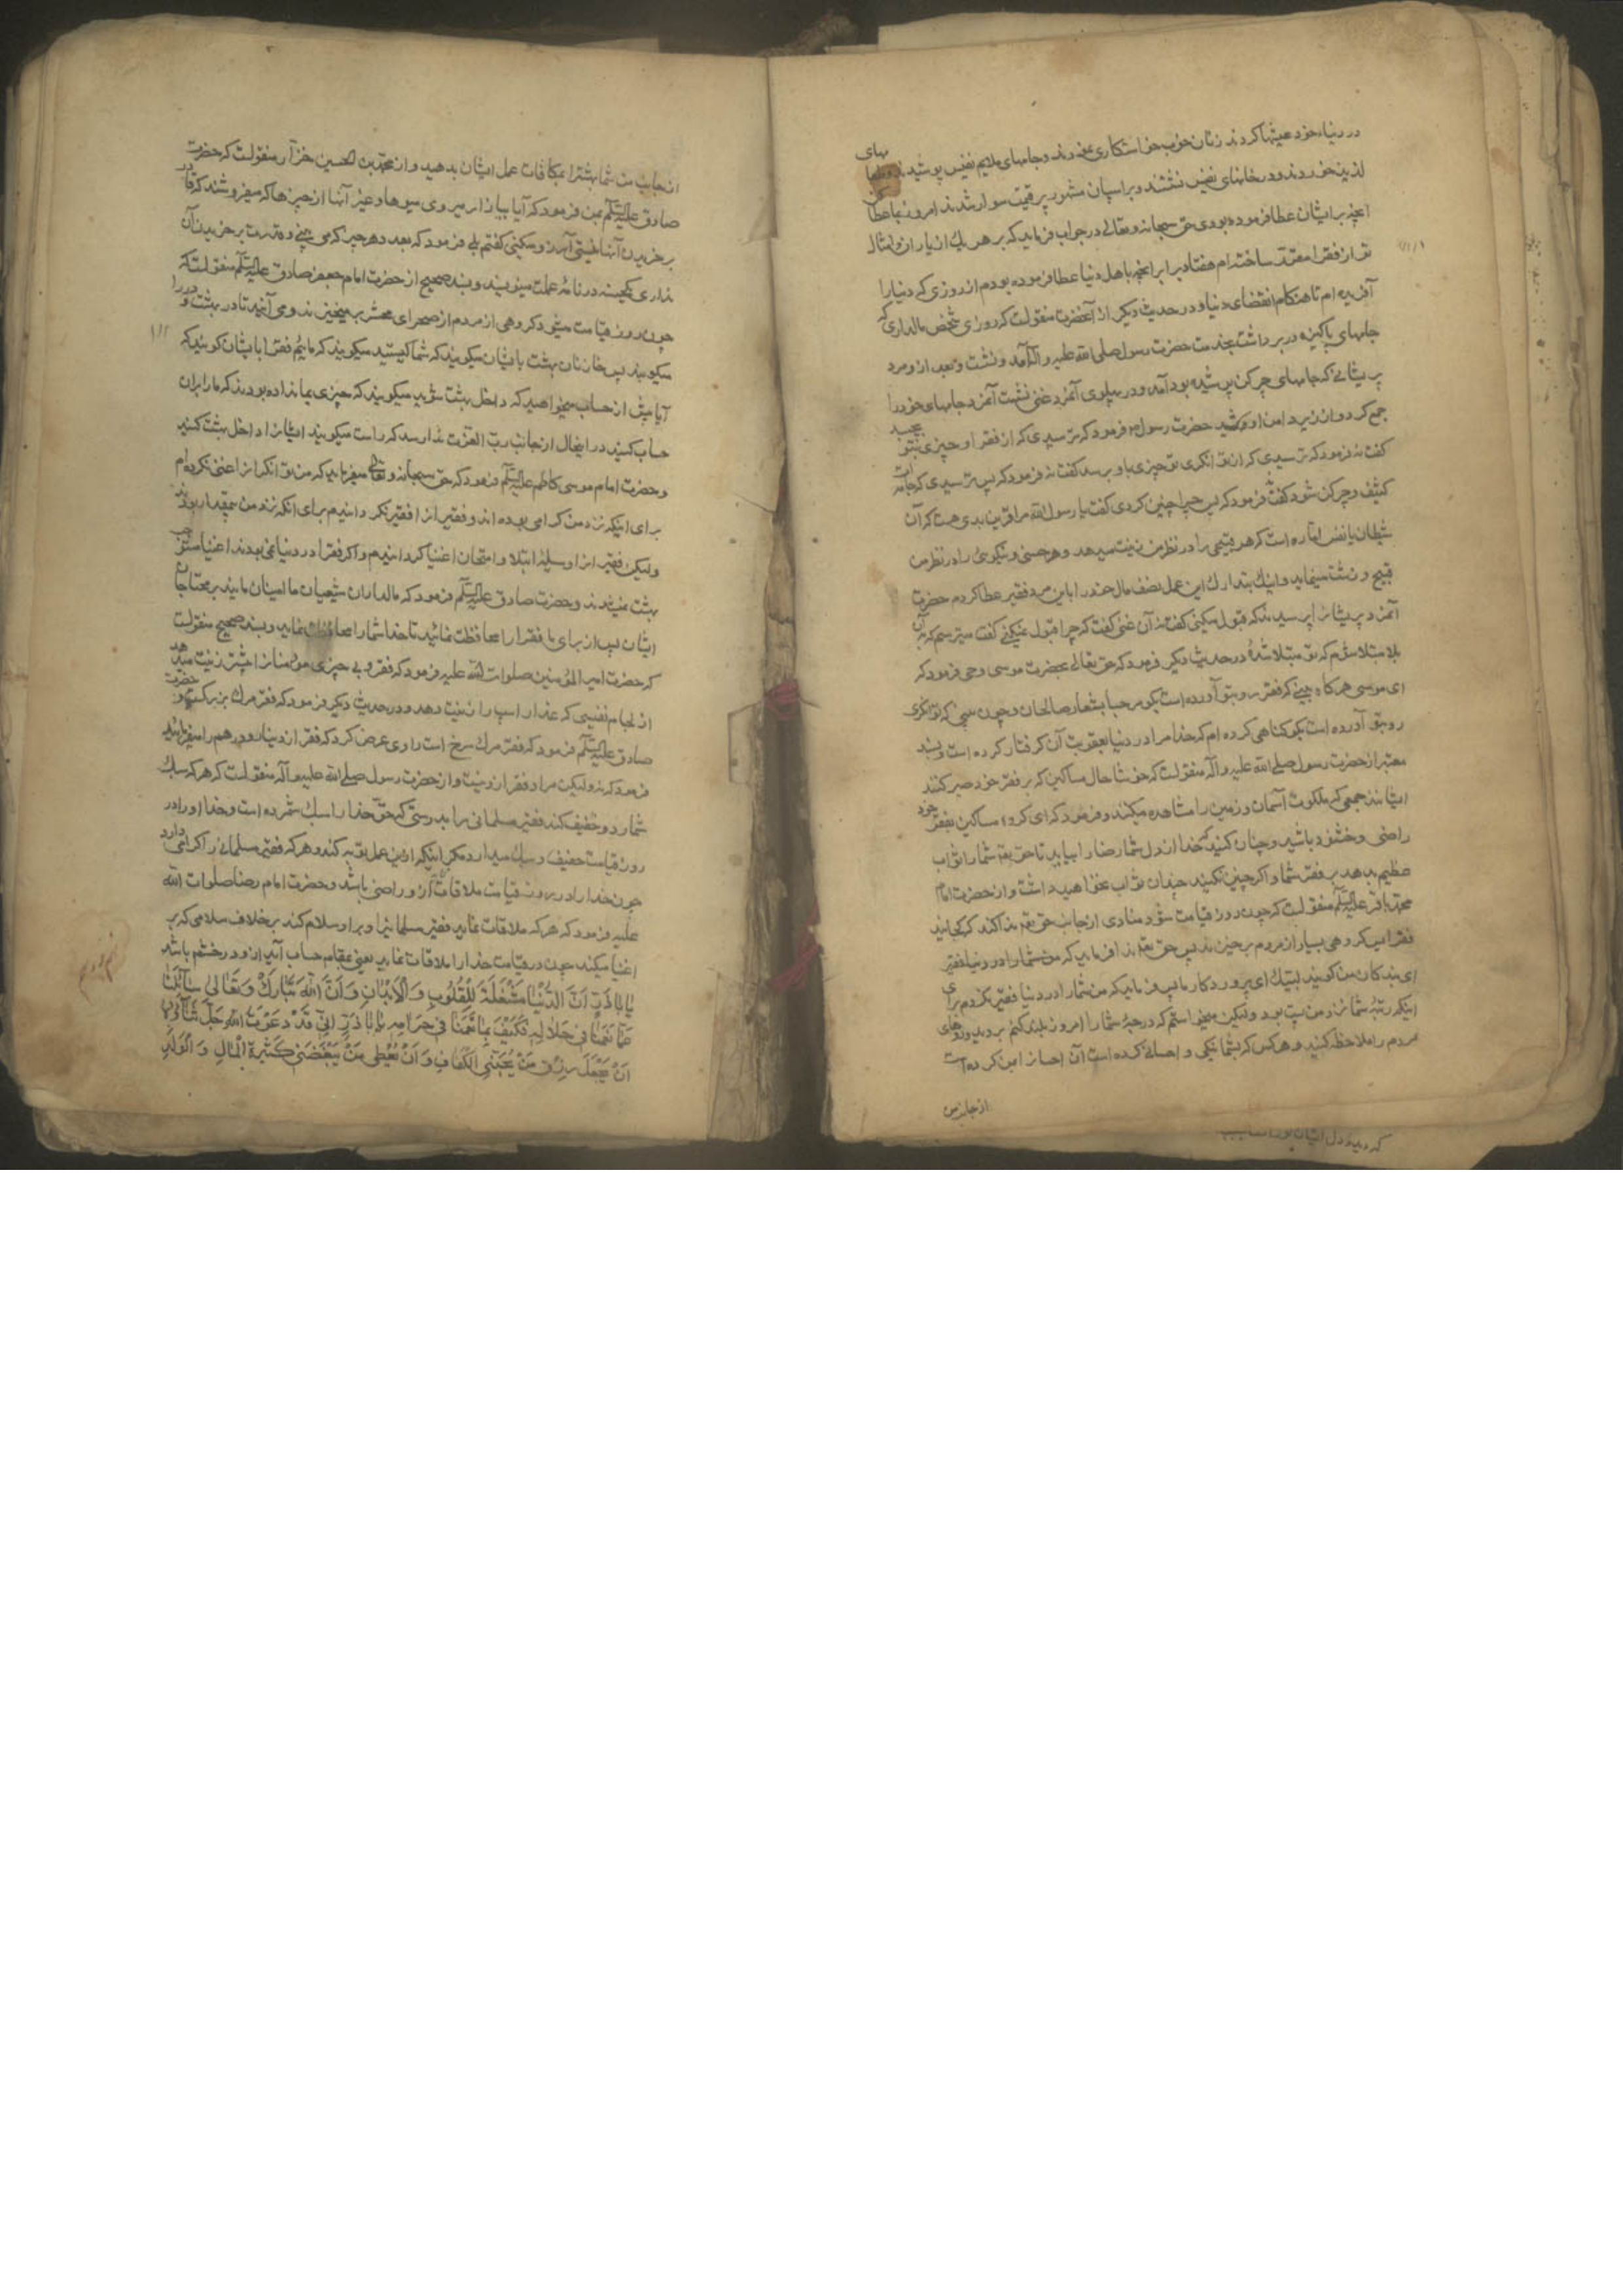 در دنیای خود عیشها کردند زنان خوب خواستکاری نمودند و جامهای ملایم نفیس پوشیدند و طعامهای
لذیذ خوردند و در خانهای نفیس نشستند و بر اسپان مشهور پرقیمت سوار شدند امروز بما عطا کن
آنچه برایشان عطا فرموده بودی حق سبحانه و تعالی در جواب فرماید که بر هر یک از یاران و امثال
تو از فقرا مقرر ساخته ام هفتاد برابر آنچه باهل دنیا عطا فرموده بودم از روزی که دنیا را
آفریده ام تا هنکام انقضای دنیا و در حدیث دیکر از آنحضرت منقولست که روزی شخص مالداری که
جامهای پاکیزه در بر داشت بخدمت حضرت رسول صلی الله علیه و اله آمد و نشست و بعد از او مرد
پریشانی که جامهای چرکن پوشیده بود آمد و در پهلوی آنمرد غنی نشست آنمرد جامهای خود را
جمع کرد و از زیر دامن او کشید حضرت رسول ص فرمود که ترسیدی که از فقر او چیزی بتو بچسبد
کفت نه فرمود که ترسیدی که از توانکری تو چیزی باو برسد کفت نه فرمود که پس ترسیدی که جامه ات
کثیف و چرکن شود کفت نه فرمود که پس چرا چنین کردی کفت یا رسول الله مرا قرین بدی هست که آن
شیطان یا نفس اماره است که هر قبیحی را در نظر من زینت میدهد و هر حسنی و نیکوئی را در نظر من
قبیح و زشت مینماید و اینک بتدارک این عمل نصف مال خود را باین مرد فقیر عطا کردم حضرت
آنمرد پریشانرا پرسیدند که قبول میکنی کفت نه آن غنی کفت که چرا قبول نمیکنی کفت میترسم که بآن
بلا مبتلا شوم که تو مبتلا شدهٔ در حدیث دیکر فرمود که حق تعالی بحضرت موسی وحی فرمود که
ای موسی هرکاه ببینی که فقر رو بتو آورده است بکو مرحبا بشعار صالحان و چون بینی که توانکری
رو بتو آورده است بکو کناهی کرده ام که خدا مرا در دنیا بعقوبت آن کرفتار کرده است و بسند
معتبر از حضرت رسول صلی الله علیه و آله منقولست که خوشا حال مساکین که بر فقر خود صبر کنند
ایشانند جمعی که ملکوت آسمان و زمین را مشاهده میکنند و فرمود که ای کروه مساکین بفقر خود
راضی و خشنود باشید و چنان کنید که خدا از دل شما رضا را بیابد تا حق تعه شما را ثواب
عظیم بدهد بر فقر شما و اکر چنین نکنید چندان ثواب نخواهید داشت و از حضرت امام
محمد باقر علیه السلم منقولست که چون روز قیامت شود منادی از جانب حق تعه ندا کند که کجایند
فقرا پس کروهی بسیار از مردم برخیزند پس حق تعه ندا فرماید که من شما را در دنیا فقیر
ای بندکان من کویند لبیک ای پروردکار ما پس فرماید که من شما را در دنیا فقیر نکردم برای
اینکه رتبهٔ شما نزد من پست بود ولیکن میخواستم که درجهٔ شما را امروز بلند کنم بروید و روهای
مردم را ملاحظه کنید و هر کس که بشما نیکی و احسانی کرده است آن احسانرا بمن کرده است
از جانب من
از جانب من شما بهشت را بمکافات عمل ایشان بدهید و از محمد بن الحسین خزاز منقولست که حضرت
صادق علیه السلم بمن فرمود که آیا ببازار میروی میوها و غیر آنها از چیزها که میفروشند که قادر
بر خریدن آنها نیستی آرزو میکنی کفتم بلی فرمود که بعدد هر چیز که می بینی و قدرت بر خریدن آن
نداری یکحسنه در نامهٔ عملت مینویسند و بسند صحیح از حضرت امام جعفر صادق علیه السلم منقولست که
چون روز قیامت میشود کروهی از مردم از صحرای محشر برمیخیزند و می آیند تا در بهشت و در را
میکوبند پس خازنان بهشت بایشان میکویند که شما کیستید میکویند که ما ئیم فقرا بایشان کویند که
آیا پیش از حساب میخواهید که داخل بهشت شوید میکویند که چیزی بما نداده بودند که ما را بر آن
حساب کنند در اینحال از جانب رب العزت ندا رسد که راست میکویند ایشانرا داخل بهشت کنید
و حضرت امام موسی کاظم علیه السلم فرمود که حق سبحانه و تعالی میفرماید که من توانکرانرا غنی نکرده ام
برای اینکه نزد من کرامی بوده اند و فقیرانرا فقیر نکردانیدم برای آنکه نزد من بیمقدار بودند
ولیکن فقیرانرا وسیلهٔ ابتلا و امتحان اغنیا کردانیدم و اکر فقرا در دنیا نمی بودند اغنیا مستوجب
بهشت نمیشدند و حضرت صادق علیه السلم فرمود که مالداران شیعیان ما امینان مایند بر محتاجان
ایشان پس از برای ما فقرا را محافظت نمائید تا خدا شما را محافظت نماید و بسند صحیح منقولست
که حضرت امیر المؤمنین صلوات الله علیه فرمود که فقر و بی چیزی مؤمنانرا بیشتر زینت میدهد
از لجام نفیسی که عذار اسپ را زینت دهد و در حدیث دیکر فرمود که فقر مرک بزرکست و حضرت
صادق علیه السلم فرمود که فقر مرک سرخ است راوی عرض کرد که فقر از دینار و درهم را میفرمائید
فرمود که نه ولیکن مراد فقر از دینست و از حضرت رسول صلی الله علیه و آله منقولست که هر که سبک
شمارد و خفیف کند فقیر مسلمانی را بدرستی که حق خدا را سبک شمرده است و خدا او را در
روز قیامت خفیف و سبک میدارد مکر اینکه ازین عمل توبه کند و هر که فقیر مسلمانی را کرامی دارد
چون خدا را در روز قیامت ملاقات کند از او راضی باشد و حضرت امام رضا صلوات الله
علیه فرمود که هر که ملاقات نماید فقیر مسلمانیرا و بر او سلام کند برخلاف سلامی که بر
اغنیا میکند چون در قیامت خدا را ملاقات نماید یعنی بمقام حساب آید از او در خشم باشد
یا اباذر ان الدنیا مشغلة للقلوب و الابدان و ان الله تبارک و تعالی سائلنا
عما نعمنا فی حلاله فکیف بما نعمنا فی حرامه یا اباذر انی قد دعوت الله جل ثناؤه
ان یجعل رزق من یحبنی الکفاف و ان یعطی من یبغضنی کثرة المال و الولد